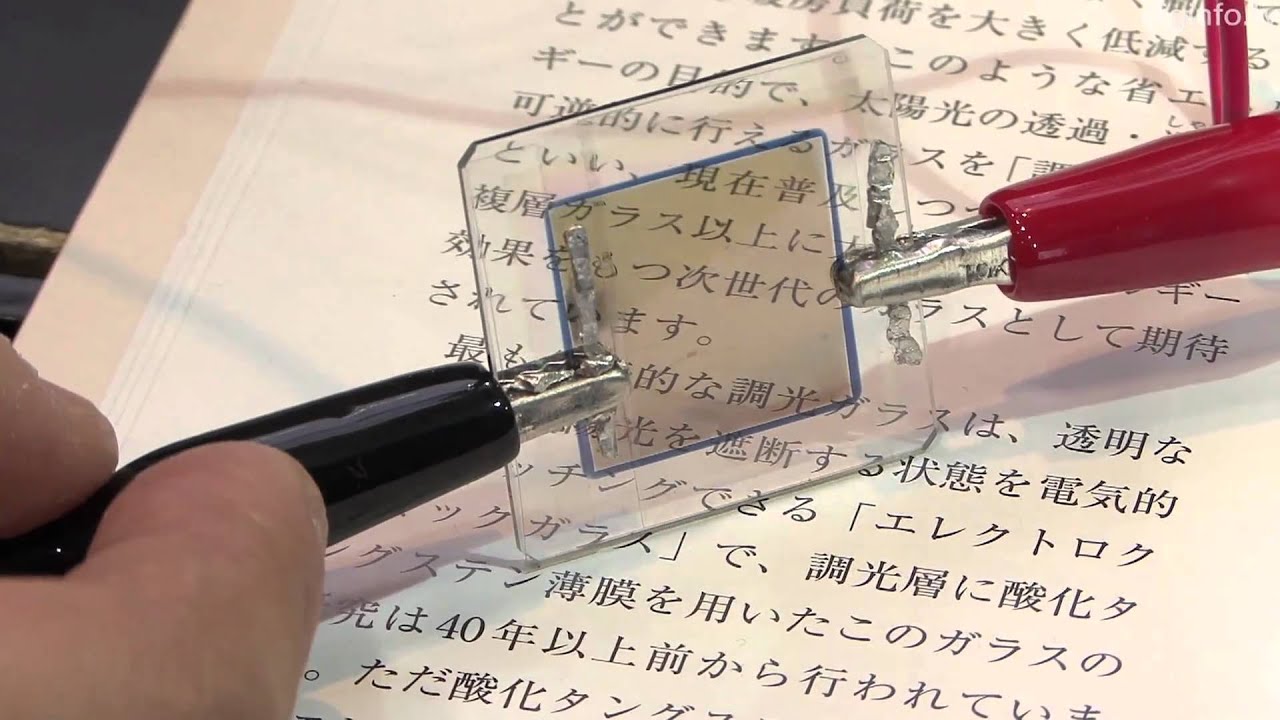 info
房負荷を大きく低減する
とができます。このような省エ
ギーの目的で、太陽光の透過・
可逆的に行えるガラスを「調
といい、現在普及しつつ
複層ガラス以上に ギー
効果をもつ次世代のガラスとして期待
されています。
最も 的な調光ガラスは、透明な
光を遮断する状態を電気的
ッチングできる「エレクトロク
ックガラス」で、調光層に酸化タ
ングステン薄膜を用いたこのガラスの
研究は40年以上前から行われていま
。ただ酸化タングス